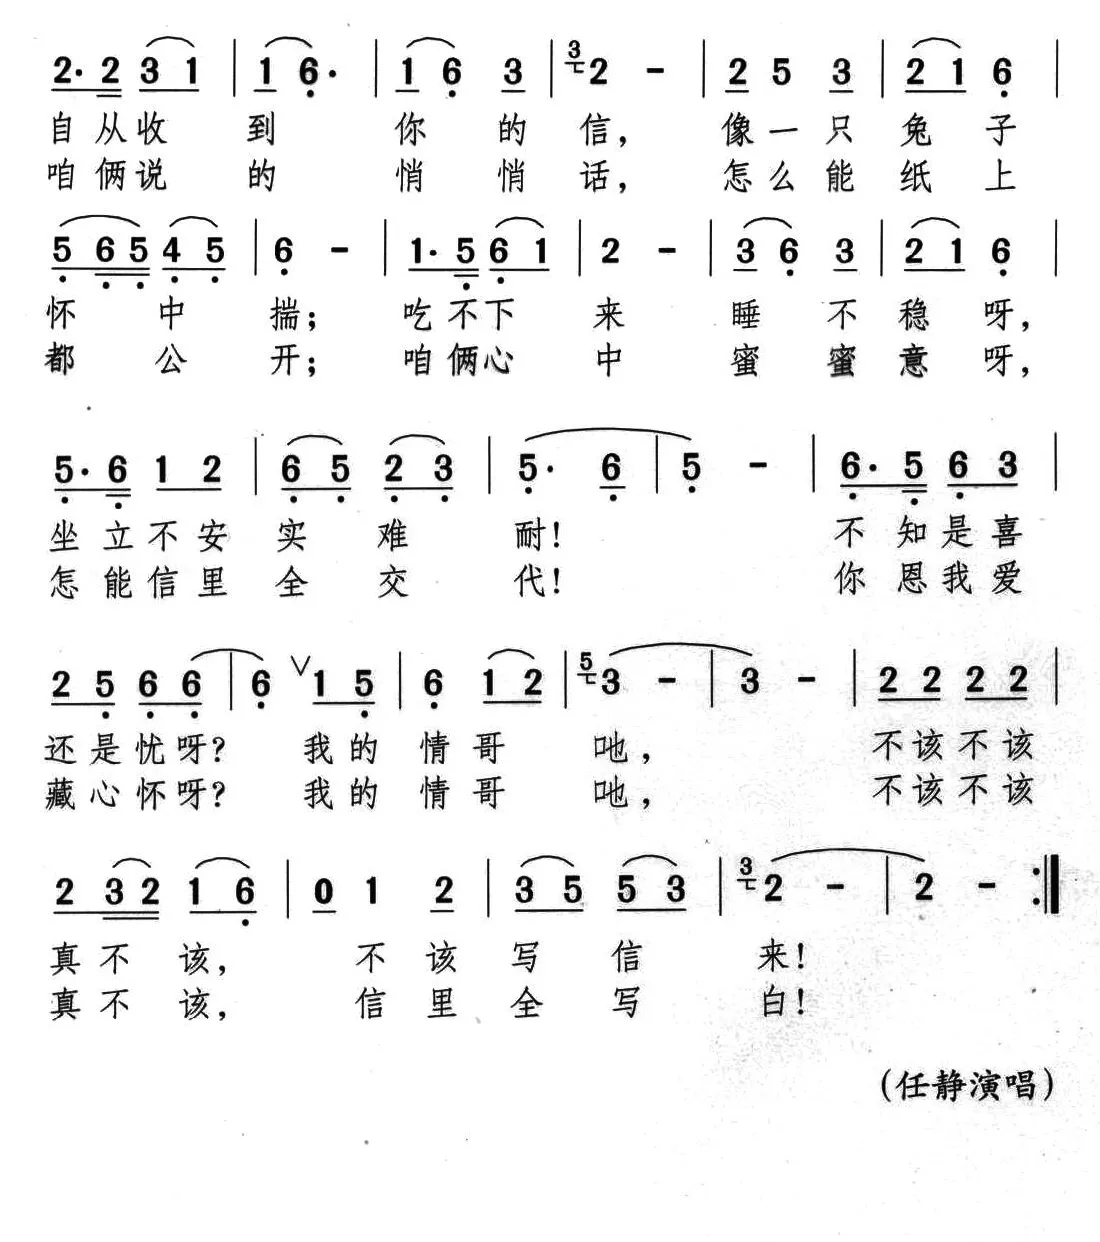 2· 2 3 1 | 1 6· | 1 6 3 | 3 2 - | 2 5 3 | 2 1 6 |
自从收到你的信，像一只兔子
咱俩说的悄悄话，怎么能纸上
5 6 5 4 5 | 6 - | 1· 5 6 1 | 2 - | 3 6 3 | 2 1 6 |
怀中揣；吃不下来睡不稳呀，
都公开；咱俩心中蜜蜜意呀，
5· 6 1 2 | 6 5 2 3 | 5· 6 | 5 - | 6· 5 6 3 |
坐立不安实难耐！不知是喜
怎能信里全交代！你恩我爱
2 5 6 6 | 6 ∨ 1 5 | 6 1 2 | 5 3 - | 3 - | 2 2 2 2 |
还是忧呀？我的情哥吔，不该不该
藏心怀呀？我的情哥吔，不该不该
2 3 2 1 6 | 0 1 2 | 3 5 5 3 | 3 2 - | 2 - :‖
真不该，不该写信来！
真不该，信里全写白！
（任静演唱）